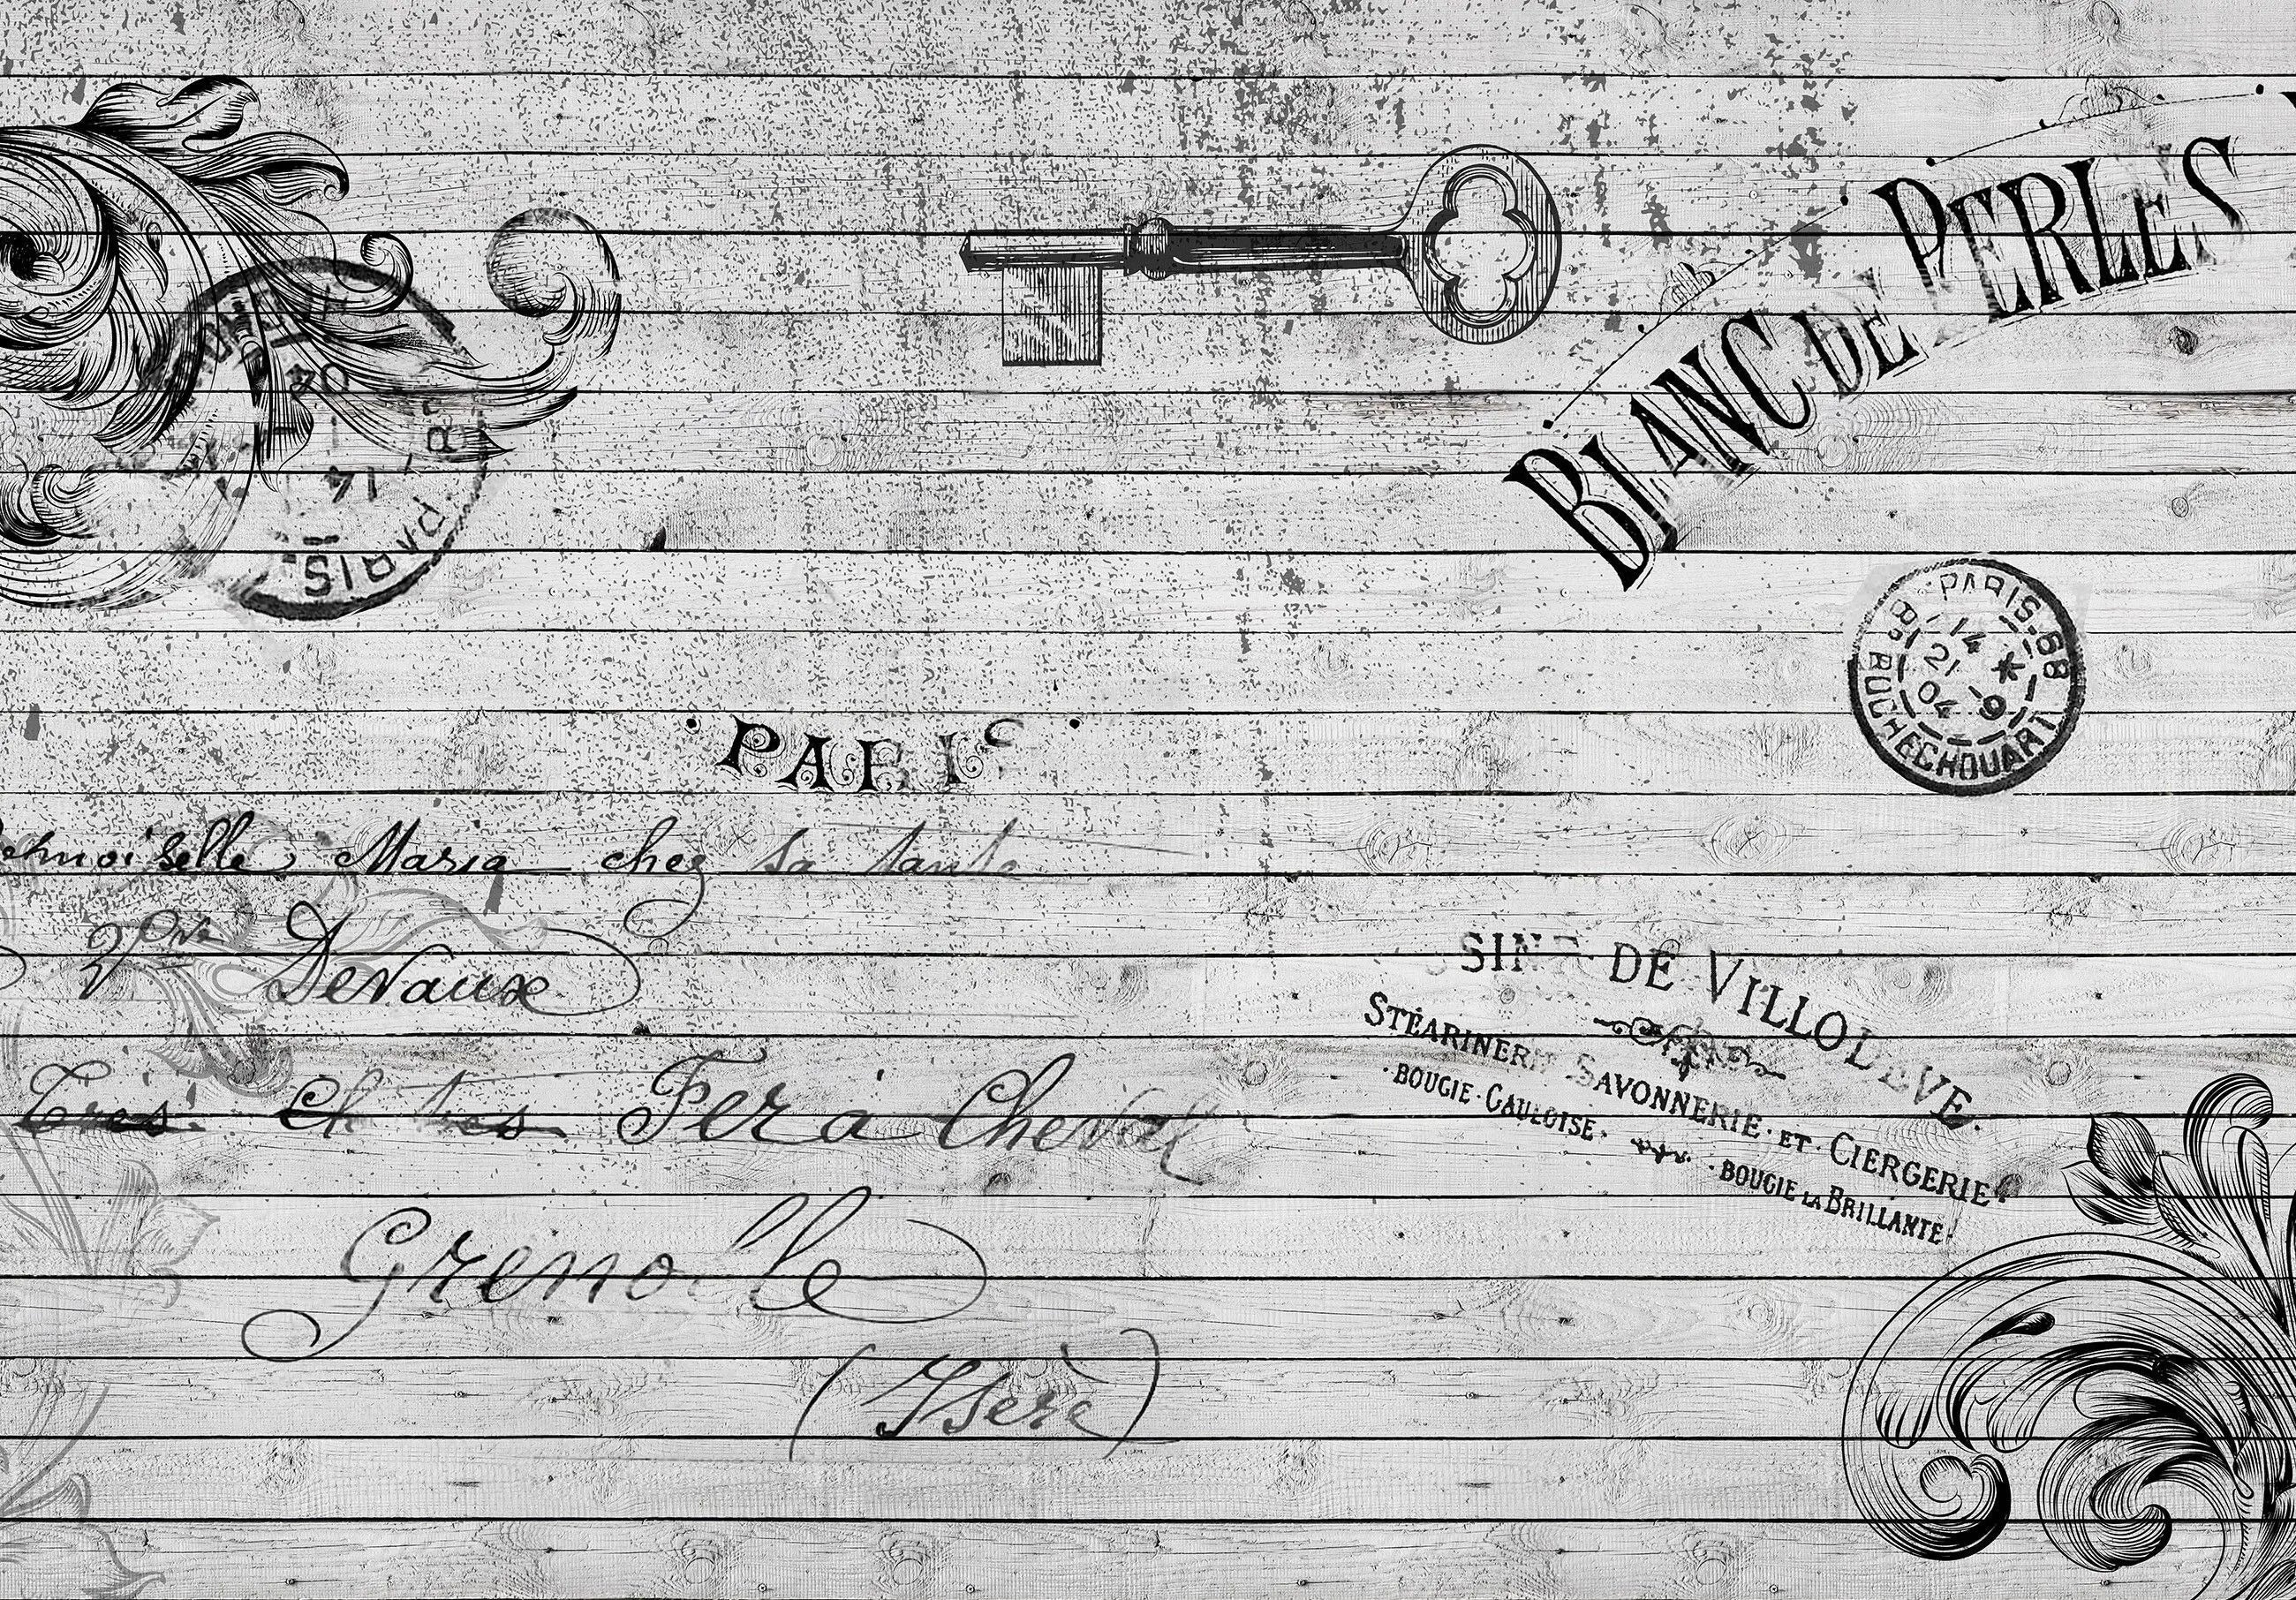 BLANC DE PERLES
PARIS
04
14
PARIS
PARIS-68
14
21 *
04 -9
R. BUCHECHOUART
moiselle Maria chez sa tante
Vve Devaux
Fer à Cheval
Grenoble
(Isère)
DE VILLOLEVE.
STÉARINERIE SAVONNERIE · ET · CIERGERIE
· BOUGIE · GAULOISE ·
· BOUGIE LA BRILLANTE ·